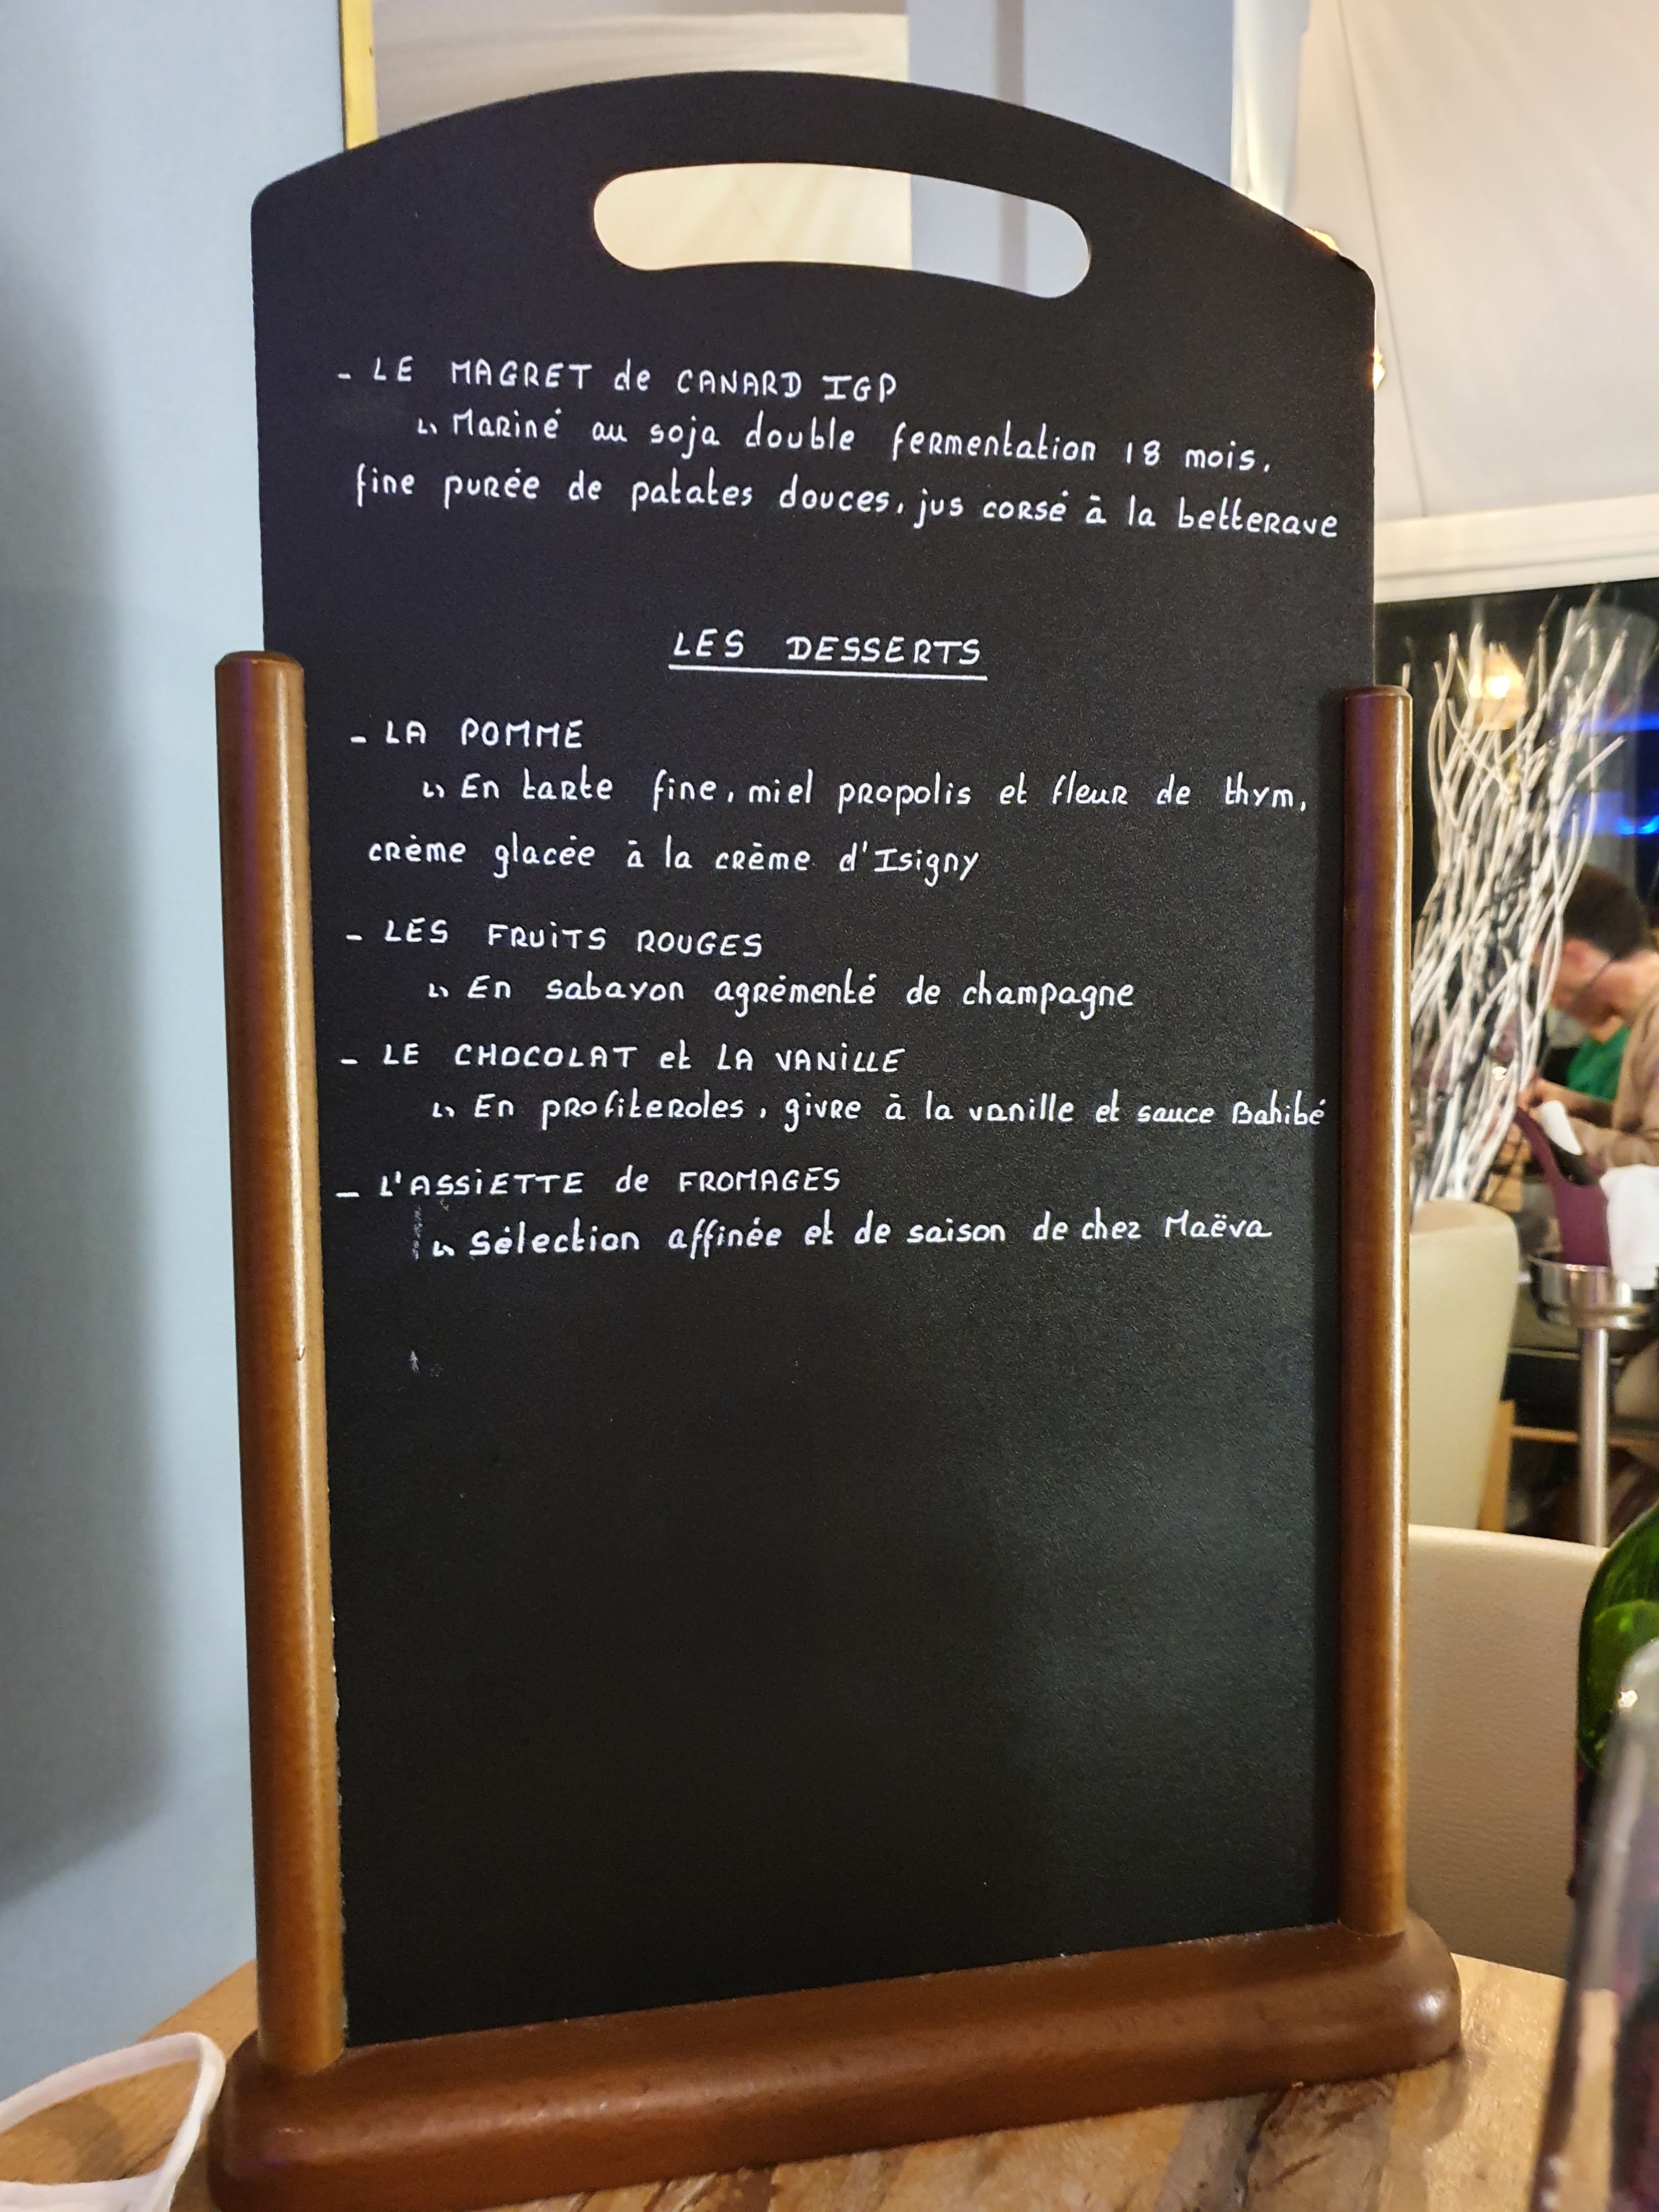 - LE MAGRET de CANARD IGP
↳ Mariné au soja double fermentation 18 mois,
fine purée de patates douces, jus corsé à la betterave
LES DESSERTS
- LA POMME
↳ En tarte fine, miel propolis et fleur de thym,
crème glacée à la crème d'Isigny
- LES FRUITS ROUGES
↳ En sabayon agrémenté de champagne
- LE CHOCOLAT et LA VANILLE
↳ En profiteroles, givre à la vanille et sauce Bahibé
- L'ASSIETTE de FROMAGES
↳ Sélection affinée et de saison de chez Maëva